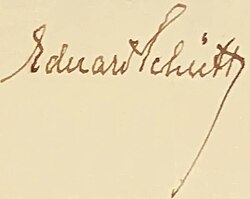 Eduard Schütt